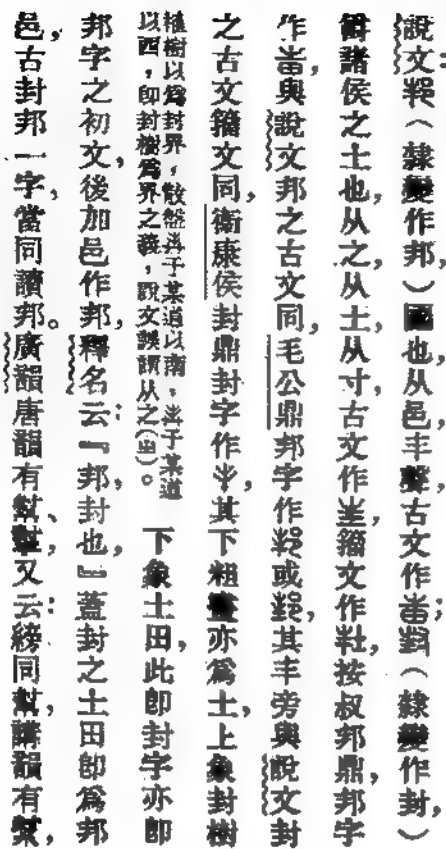 說文𨛜（隸變作邦，）國也，从邑，丰聲，古文作𤰫；𡊽（隸變作封，）
爵諸侯之土也，从之，从土，从寸，古文作𡉚，籀文作𡉘，按叔邦鼎，邦字
作𤰫，與說文邦之古文同，毛公鼎邦字作或，其丰旁與說文封
之古文籀文同，衛康侯封鼎封字作，其下粗畫亦爲土，上象封樹
植樹以爲封界，散盤封于某道以南，封于某道
以西，卽封樹爲界之義，說文誤謂从之(㞢)。下象土田，此卽封字亦卽
邦字之初文，後加邑作邦，釋名云：『邦，封也，』蓋封之土田卽爲邦
邑，古封邦一字，當同讀邦。廣韻唐韻有幫、又云：縍同幫，講韻有